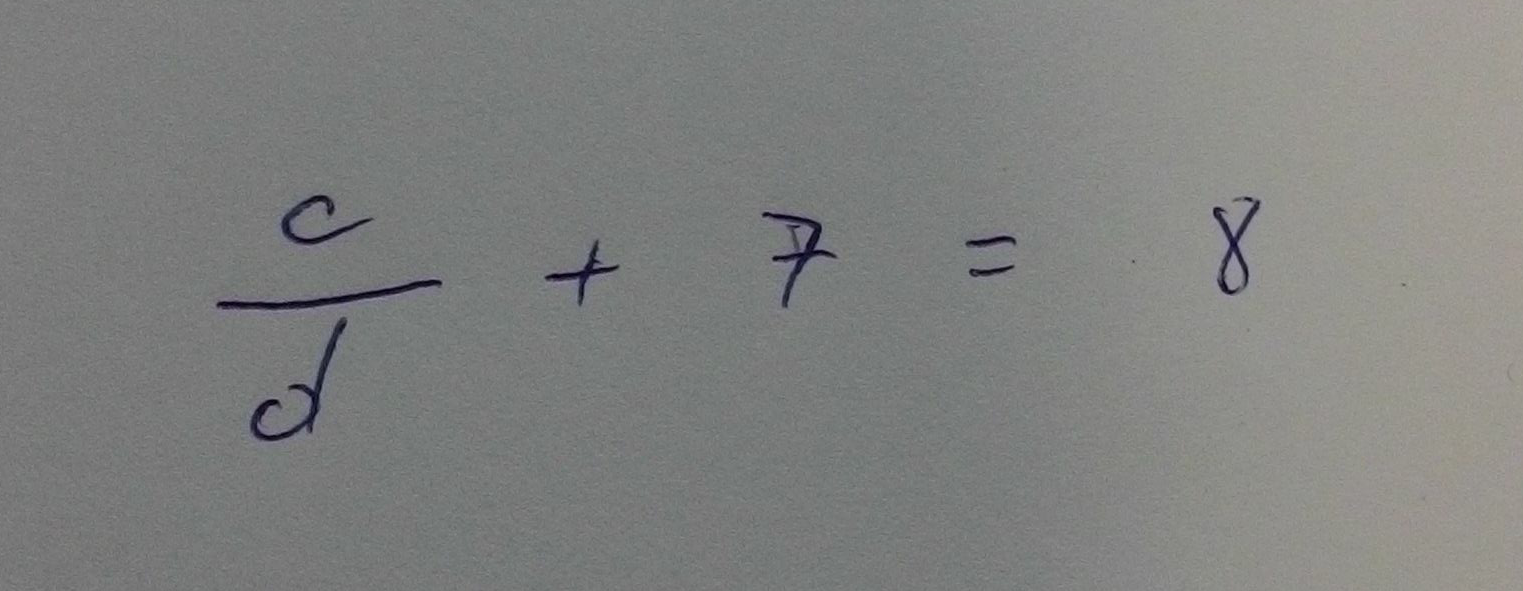 c/d + 7 = 8